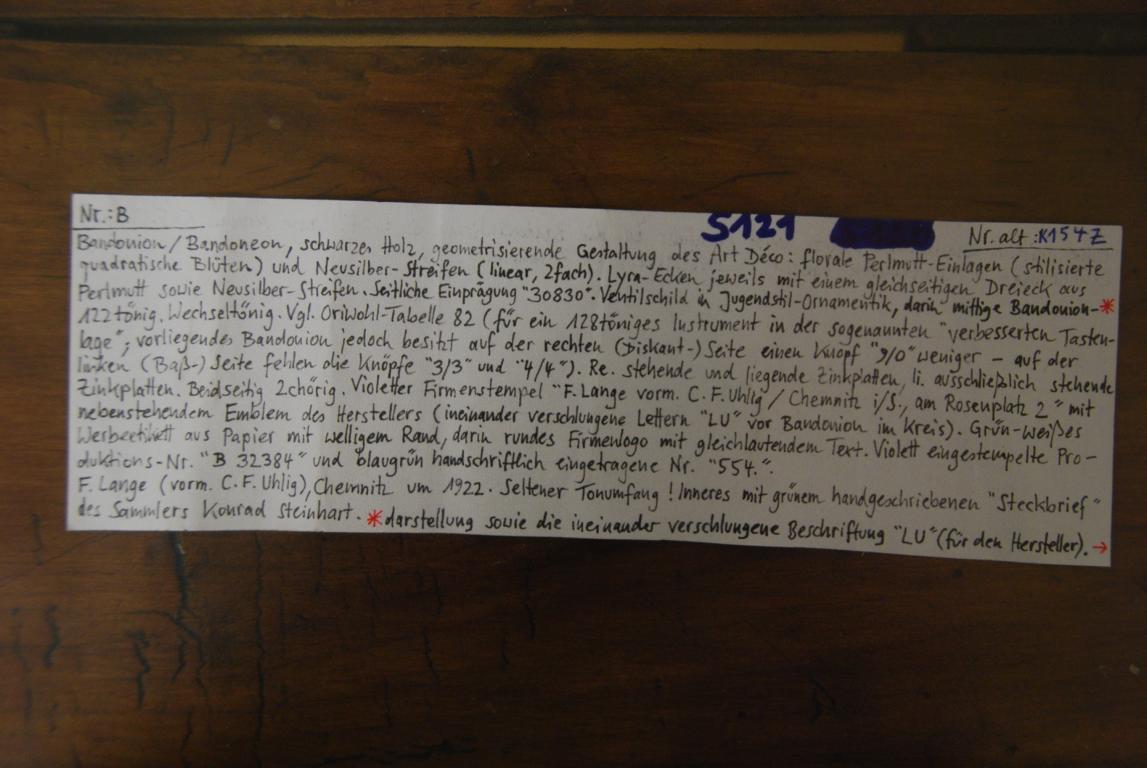 Nr.:B
5121
Nr. alt :K154Z
Bandonion / Bandoneon, schwarzes Holz, geometrisierende Gestaltung des Art Déco: florale Perlmutt-Einlagen (stilisierte
quadratische Blüten) und Neusilber-Streifen (linear, 2fach). Lyra-Ecken jeweils mit einem gleichseitigen Dreieck aus
Perlmutt sowie Neusilber-Streifen. Seitliche Einprägung "30830". Ventilschild in Jugendstil-Ornamentik, darin mittige Bandonion-*
122tönig. Wechseltönig. Vgl. Oriwohl-Tabelle 82 (für ein 128töniges Instrument in der sogenannten "verbesserten Tasten-
lage"; vorliegendes Bandonion jedoch besitzt auf der rechten (Diskant-) Seite einen Knopf "9/0" weniger – auf der
linken (Baß-) Seite fehlen die Knöpfe "3/3" und "4/4"). Re. stehende und liegende Zinkplatten, li. ausschließlich stehende
Zinkplatten. Beidseitig 2chörig. Violetter Firmenstempel "F. Lange vorm. C. F. Uhlig / Chemnitz i/S., am Rosenplatz 2" mit
nebenstehendem Emblem des Herstellers (ineinander verschlungene Lettern "LU" vor Bandonion im Kreis). Grün-weißes
Werbeetikett aus Papier mit welligem Rand, darin rundes Firmenlogo mit gleichlautendem Text. Violett eingestempelte Pro-
duktions-Nr. "B 32384" und blaugrün handschriftlich eingetragene Nr. "554.".
F. Lange (vorm. C. F. Uhlig), Chemnitz um 1922. Seltener Tonumfang! Inneres mit grünem handgeschriebenen "Steckbrief"
des Sammlers Konrad Steinhart. *darstellung sowie die ineinander verschlungene Beschriftung "LU" (für den Hersteller). →